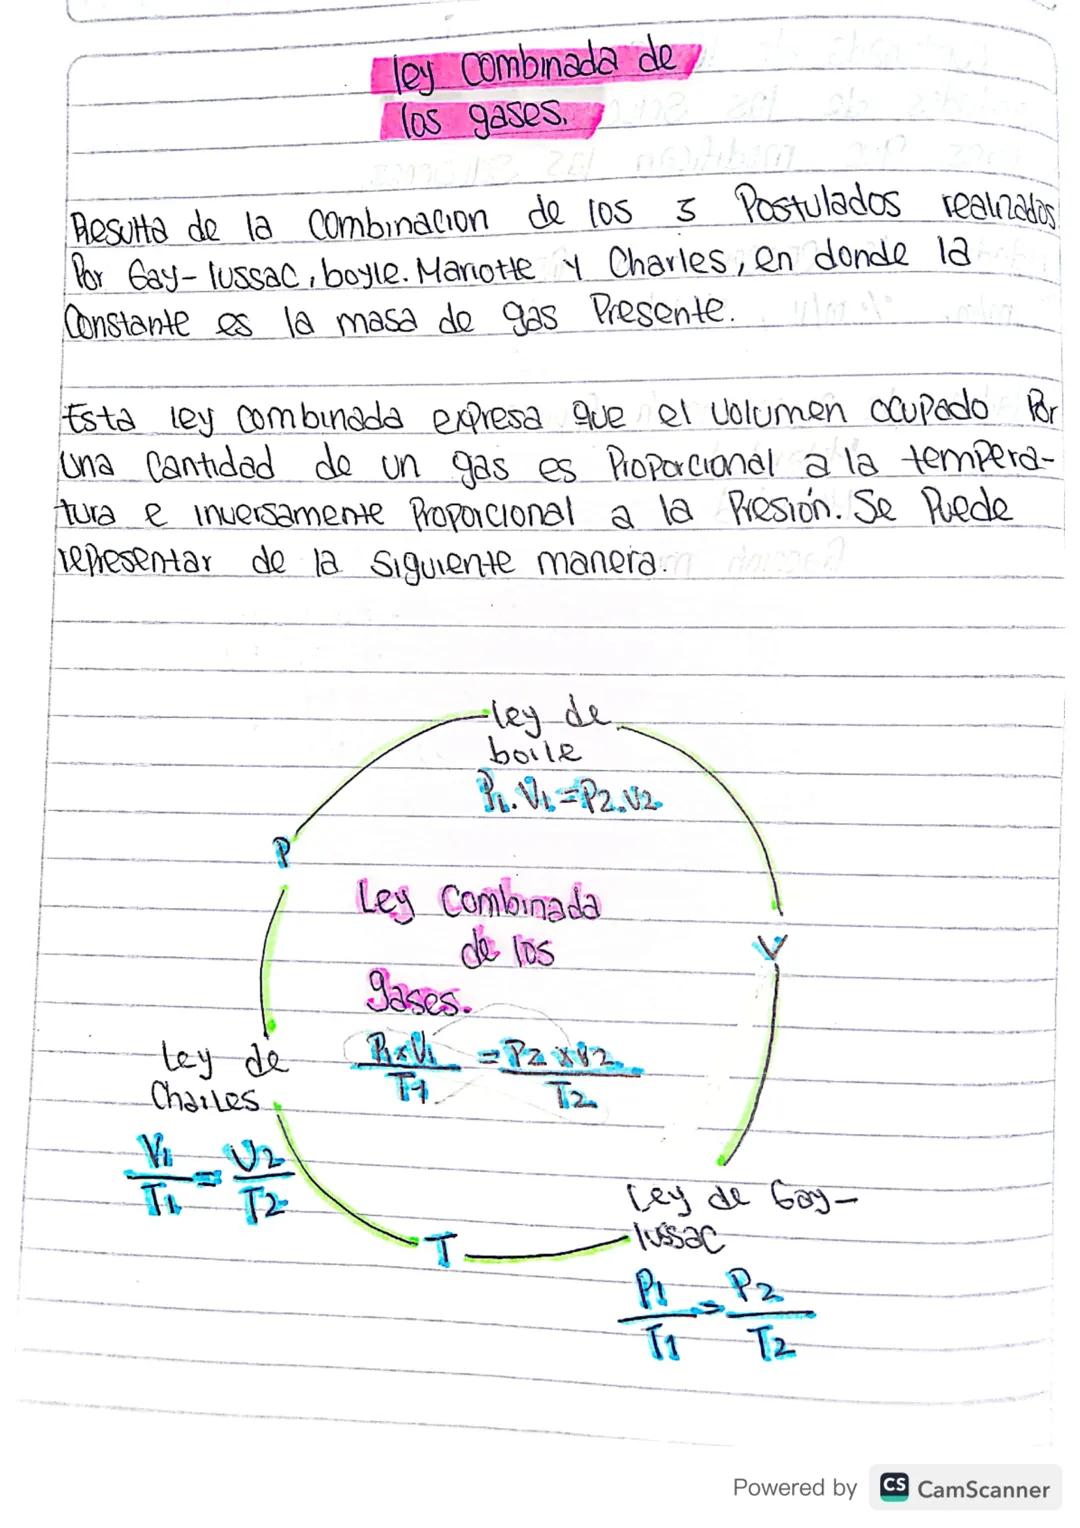 ley combinada de
los gases.
Resulta de la combinacion de los 3 Postulados realizados
Por Gay-lussac, boyle. Mariotte y Charles, en donde la
Constante es la masa de gas Presente.
Esta ley combinada expresa que el volumen ocupado Por
una cantidad de un gas es Proporcional a la tempera-
tura e inversamente Proporcional a la Presión. Se Puede
representar de la siguiente manera.
ley de
boile
P1.V1=P2.V2
P
Ley Combinada
de los
gases.
V
P1xV1 = P2xV2
T1 T2
Ley de
Charles
V1 = V2
T1 T2
Ley de Gay-
lussac
T
P1 = P2
T1 T2
Powered by CS CamScanner